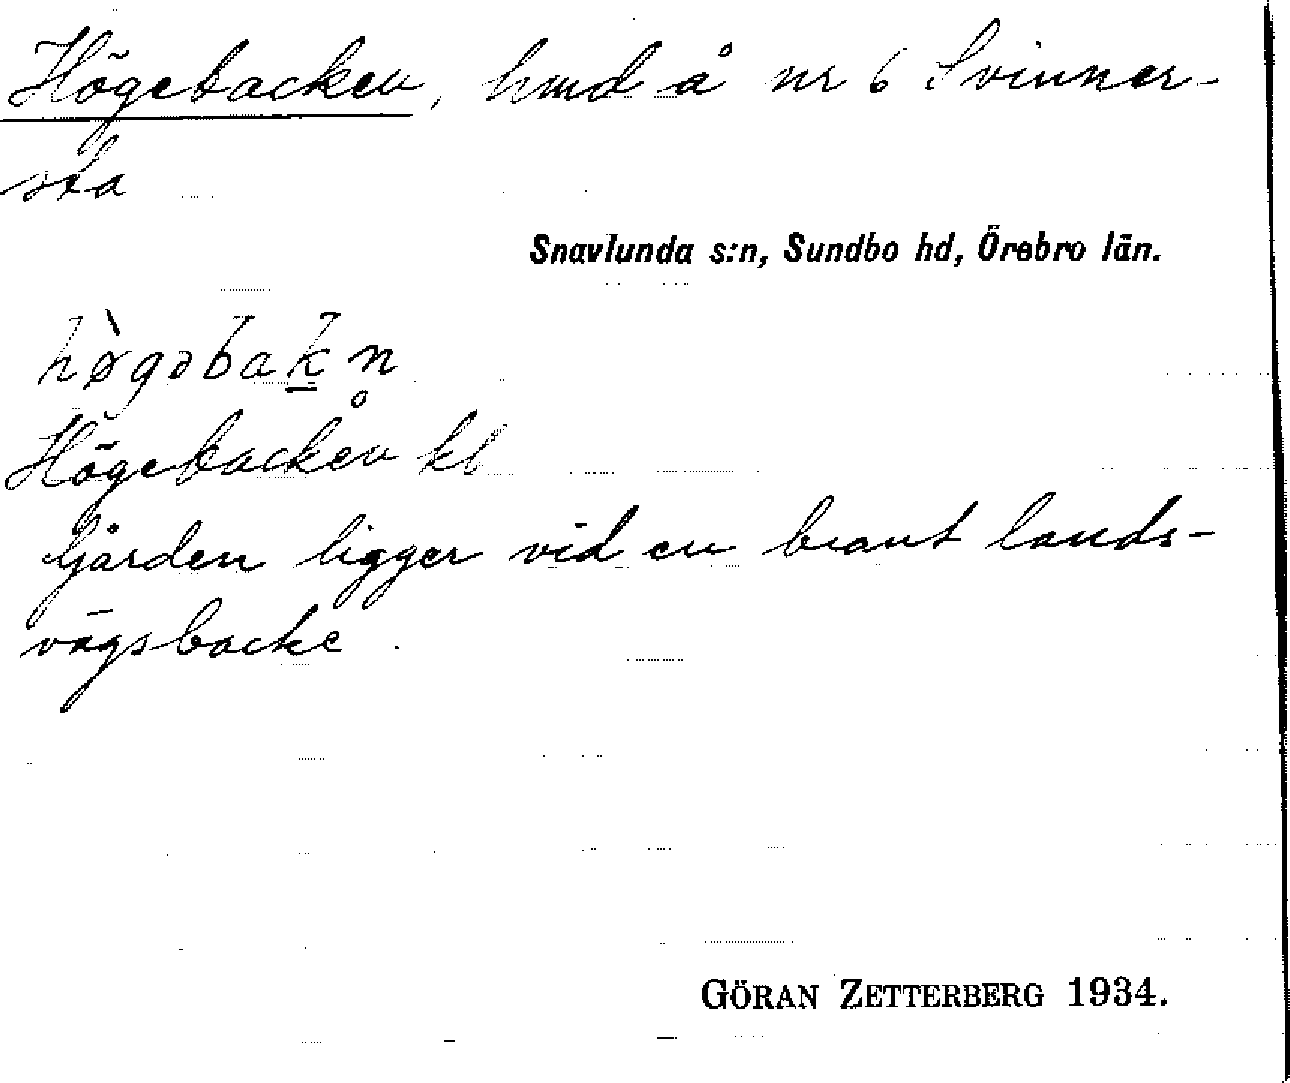 Högebacken, hmd å nr 6 Svinner-
sta
Snavlunda s:n, Sundbo hd, Örebro län.
hø̀gəbak̲n̥
Högebacken kb
Gården ligger vid en brant lands-
vägsbacke.
GÖRAN ZETTERBERG 1934.